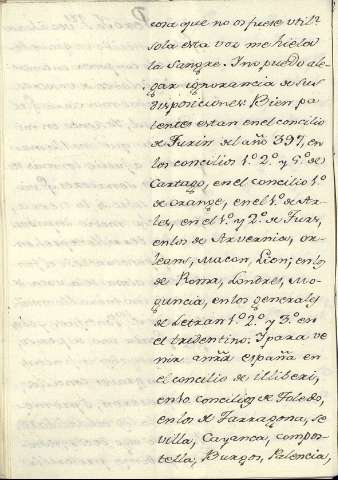 cosa que no os fuese util:
sola esta voz me hiela
la sangre. Ino puedo ale-
gar ignorancia de sus
disposiciones. Bien pa-
tentes estan en el concilio
de Turin del año 397, en
los concilios 1.º 2.º y 5.º de
Cartago, en el concilio 1.º
de orange, en el 1.º de Ar-
les, en el 1.º y 2.º de Turs,
en los de Arvernia, or-
leans, Macon, Lion; en los
de Roma, Londres, Mo-
guncia, en los generales
de Letran 1.º 2.º y 3.º en
el tridentino. I para ve
nir a nřa españa en
el concilio de illiberi,
en los concilios de Toledo,
en los de Tarragona, se
villa, Coyanca, compos-
tella, Burgos, Palencia,